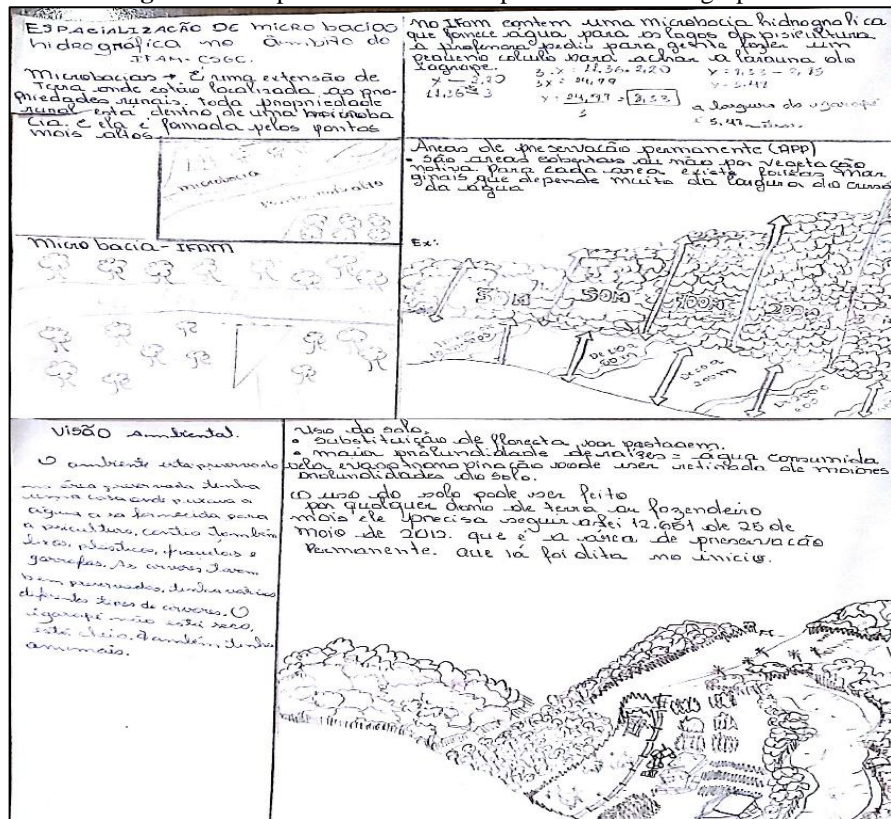 ESPACIALIZAÇÃO DE MICRO bACIAS
hidrográfica no âmbito do
IFAM-CSGC.
Microbacias → É uma extensão de
Terra onde estão localizada as pro-
priedades rurais. toda propriedade
rural está dentro de uma microba
cia. e ela é formada pelos pontos
mais altos
microbacia
Ponto mais alto
Micro bacia - IFAM
no Ifam contem uma microbacia hidrografica
que fornece água para os lagos da pisicultura
a professora pediu para gente fazer um
pequeno calculo para achar a largura do
Igarape.
x — 2,20
11,36 — 3
3.x = 11,36.2,20
3x = 24,99
x = 24,99 = 8,33
3
a largura do igarapé
= 5,48
Áreas de preservação permanente (APP)
• São áreas cobertas ou não por vegetação
nativa. Para cada area existe faixas mar
ginais que depende muito da largura do curso
da água
Ex:
30M
50M
100m
200m
De 10 a
50m
De 50 a
200m
VISÃO Ambiental.
O ambiente esta preservado
na área preservada tinha
uma casa onde puxava a
água e so fornecida para
a piscultura, contia tambem
lixos, plasticos, fraudas e
garrafas. As arvores
bem preservadas, tinha varios
diferentes tipos de arvores. O
igarapé não está seco,
está cheio. também tinha
animais.
Uso do solo.
• Substituição de floresta por pastagem.
• maior profundidade de raízes = água consumida
pela evapotranspiração pode ser retirada de maiores
profundidades do solo.
O uso do solo pode ser feito
por qualquer dono de terra ou fazendeiro
mais ele precisa seguir a lei 12.651 de 25 de
maio de 2012. que é a área de preservação
Permanente. que já foi dita no início.